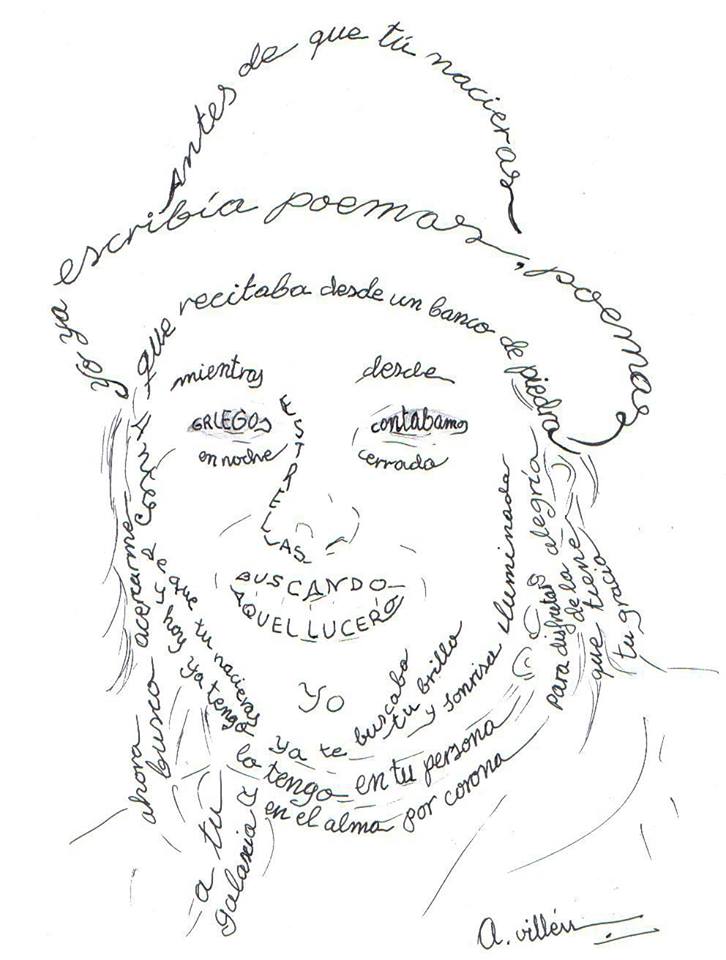 Antes de que tú nacieras
Yo ya escribía poemas, poemas
que recitaba desde un banco de piedra
mientras desde
GRIEGOS contábamos
en noche cerrada
ESTRELLAS
BUSCANDO
AQUEL LUCERO
Yo
ya te buscaba
de que tu nacieras
tu brillo
y sonrisa iluminada
y hoy ya tengo
lo tengo en tu persona
en el alma por corona
ahora
busco acercarme
a tu
galaxia
para disfrutar
de la alegría
que tiene
tu gracia
A. Villén